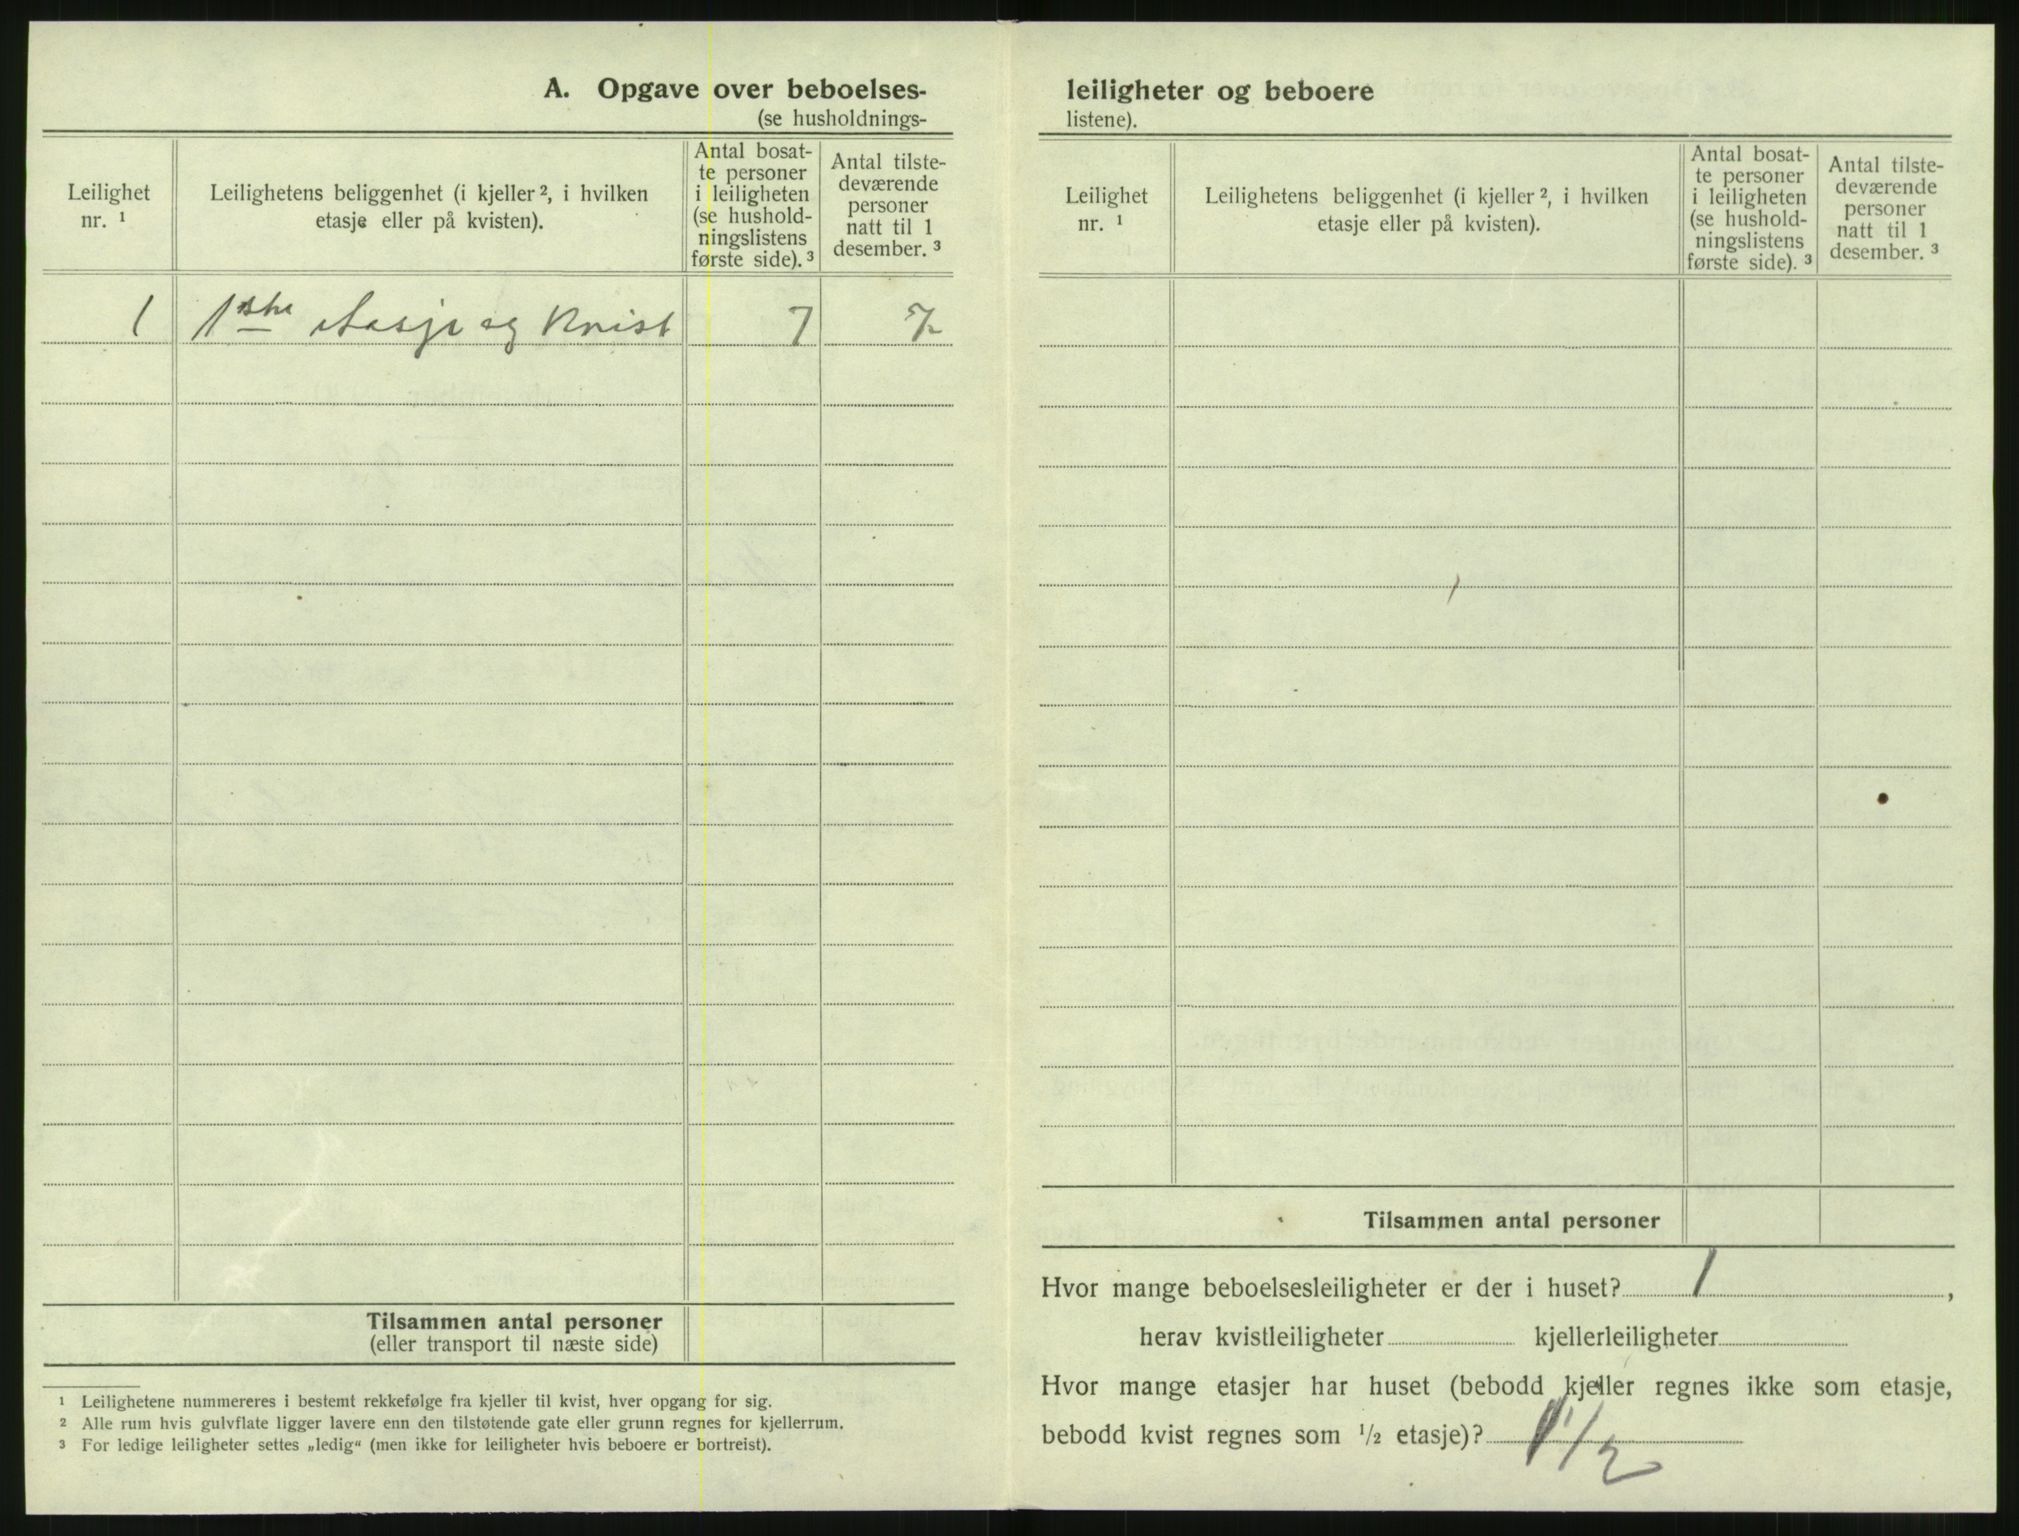 A. Opgave over beboelses-
(se husholdnings-
Leilighet
nr. ¹
Leilighetens beliggenhet (i kjeller ², i hvilken
etasje eller på kvisten).
Antal bosat-
te personer
i leiligheten
(se hushold-
ningslistens
første side). ³
Antal tilste-
deværende
personer
natt til 1
desember. ³
1 1ste etasje og Kvist 7 7
Tilsammen antal personer
(eller transport til næste side)
¹ Leilighetene nummereres i bestemt rekkefølge fra kjeller til kvist, hver opgang for sig.
² Alle rum hvis gulvflate ligger lavere enn den tilstøtende gate eller grunn regnes for kjellerrum.
³ For ledige leiligheter settes „ledig“ (men ikke for leiligheter hvis beboere er bortreist).
leiligheter og beboere
listene).
Leilighet
nr. ¹
Leilighetens beliggenhet (i kjeller ², i hvilken
etasje eller på kvisten).
Antal bosat-
te personer
i leiligheten
(se hushold-
ningslistens
første side). ³
Antal tilste-
deværende
personer
natt til 1
desember. ³
Tilsammen antal personer
Hvor mange beboelsesleiligheter er der i huset? 1,
herav kvistleiligheter kjellerleiligheter
Hvor mange etasjer har huset (bebodd kjeller regnes ikke som etasje,
bebodd kvist regnes som ½ etasje)? 1 1/2